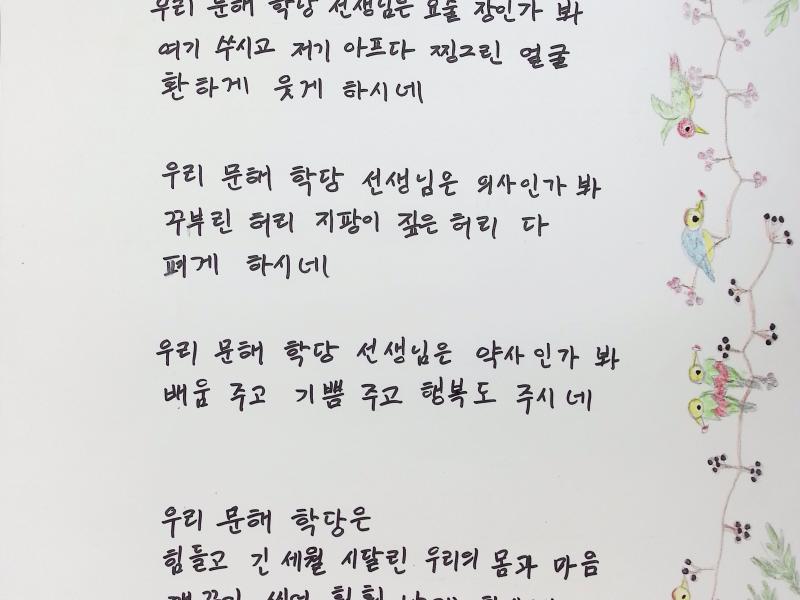 우리 문해 학당 선생님은 요술 장인가 봐
여기 쑤시고 저기 아프다 찡그린 얼굴
환하게 웃게 하시네
우리 문해 학당 선생님은 의사인가 봐
꾸부린 허리 지팡이 짚은 허리 다
펴게 하시네
우리 문해 학당 선생님은 약사인가 봐
배움 주고 기쁨 주고 행복도 주시네
우리 문해 학당은
힘들고 긴 세월 시달린 우리의 몸과 마음